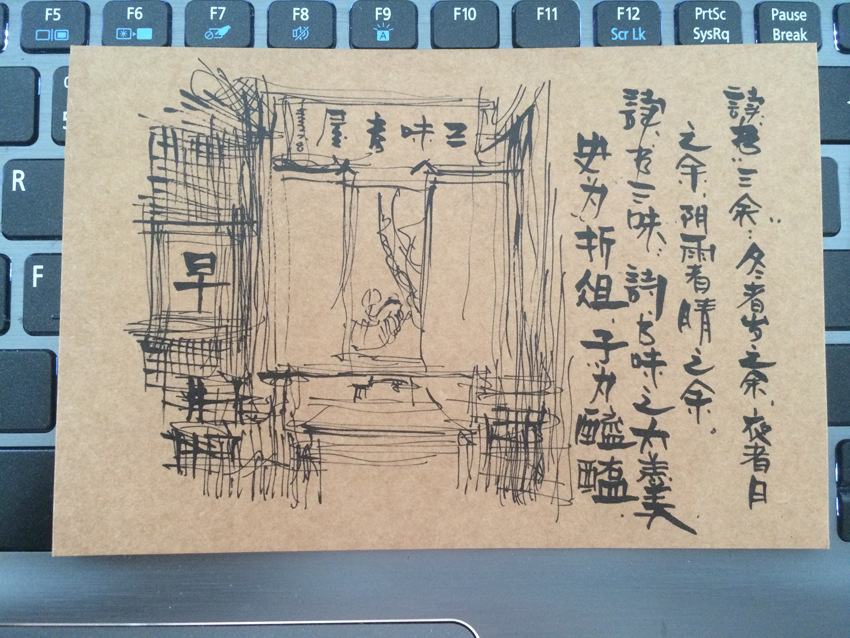 F5
F6
F7
F8
F9
F10
F11
F12
Scr Lk
PrtSc
SysRq
Pause
Break
R
F
三味書屋
早
读书三余：冬者岁之余，夜者日
之余，阴雨者晴之余。
读书三味：詩书味之太羹
史为折俎，子为醯醢